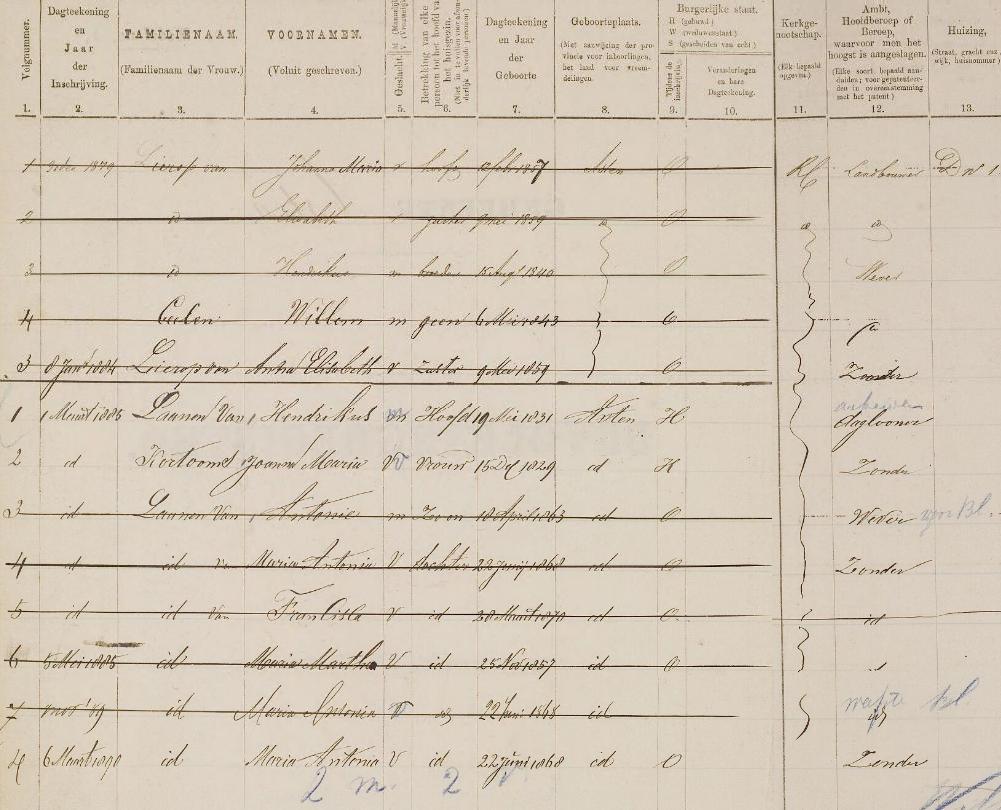 Volgnummer.
1.
Dagteekening
en
Jaar
der
Inschrijving.
2.
FAMILIENAAM.
(Familienaam der Vrouw.)
3.
VOORNAMEN.
(Voluit geschreven.)
4.
Geslacht.
5.
Betrekking van elke
persoon tot het hoofd van
het huisgezin.
6.
Dagteekening
en Jaar
der
Geboorte
7.
Geboorteplaats.
(Met aanwijzing der pro-
vincie voor inboorlingen,
het land voor vreem-
delingen.
8.
Burgerlijke staat.
H (gehuwd)
W (weduwenstaat)
S (gescheiden van echt)
Tijdens de
inschrijving.
9.
Veranderingen
en hare
Dagteekening.
10.
Kerkge-
nootschap.
(Elk bepaald
opgeven.)
11.
Ambt,
Hoofdberoep of
Beroep,
waarvoor men het
hoogst is aangeslagen.
(Elke soort bepaald aan-
duiden; voor gepatenteer-
den in overeenstemming
met het patent)
12.
Huizing,
(Straat, gracht enz.,
wijk, huisnummer)
13.
1 1879 Lierop van Johanna Maria v hoofd feb 1857 Asten O RC Landbouwer D no 1
2 id Elisabeth zuster 9 mei 1859 id O id id
3 id Hendrikus m broeder 15 Aug 1840 O Wever
4 Ceelen Willem m geen 6 Mei 1843 O
3 8 Jan 1884 Lierop van Anna Elisabeth v Zuster 9 Mei 1859 O Zonder
1 1 Maart 1885 Laanen Van, Hendrikus m Hoofd 19 Mei 1831 Asten H daglooner
2 id Kortooms Joanna Maria V Vrouw 15 1829 id H Zonder
3 id Laanen Van, Antonie m Zoon 18 April 1863 id O Wever
4 id id Van Maria Antonia V dochter 22 Junij 1868 id O Zonder
5 id id Van Francisca V id 28 Maart 1870 id O id
6 5 Mei 1885 id Maria Martha V id 25 Nov 1857 id O
7 nov '89 id Maria Antonia V id 22 Juni 1868 id id
4 6 Maart 1890 id Maria Antonia V id 22 Juni 1868 id O Zonder
2 m. 2 v.